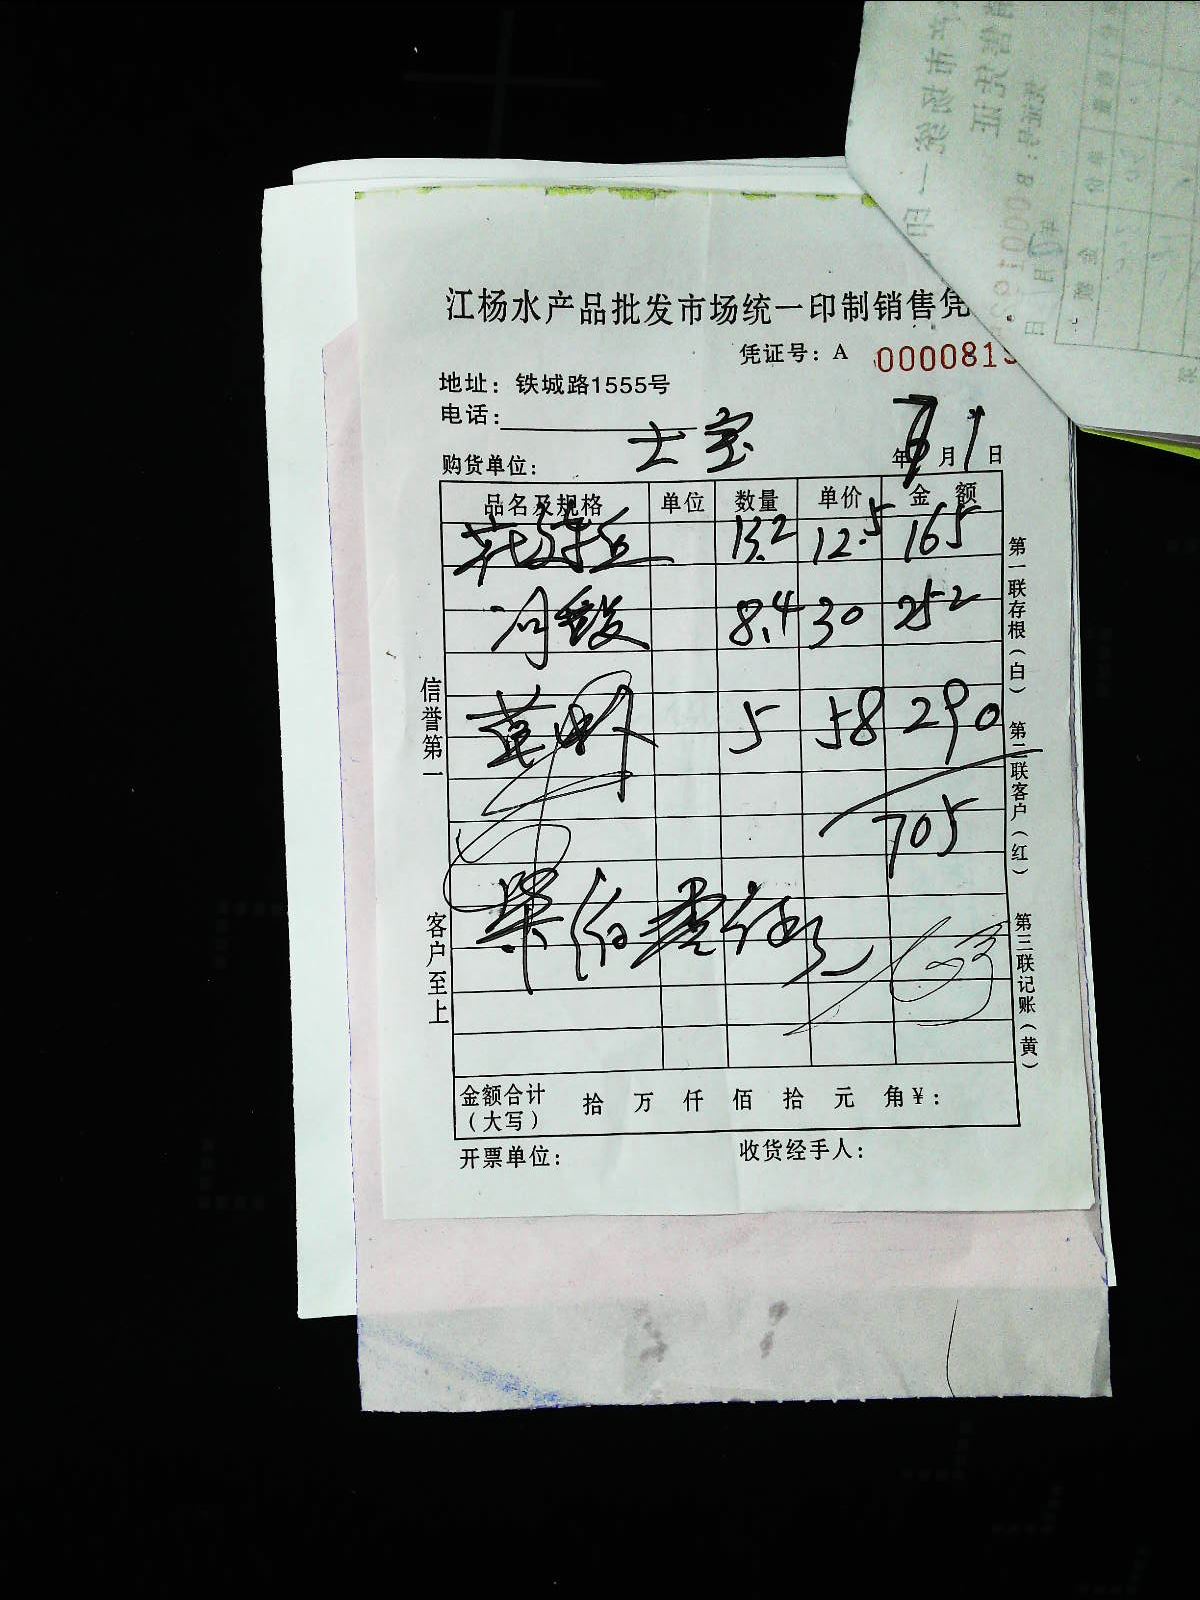 江杨水产品批发市场统一印制销售凭
凭证号：A 0000081
地址：铁城路1555号
电话：
购货单位： 士宝 年 月1日
品名及规格 单位 数量 单价 金 额
13.2 12.5 165
8.4 30 252
5 58 290
705
柒佰零伍元
金额合计（大写） 拾 万 仟 佰 拾 元 角¥：
开票单位： 收货经手人：
信誉第一
客户至上
第一联存根（白） 第二联客户（红） 第三联记账（黄）